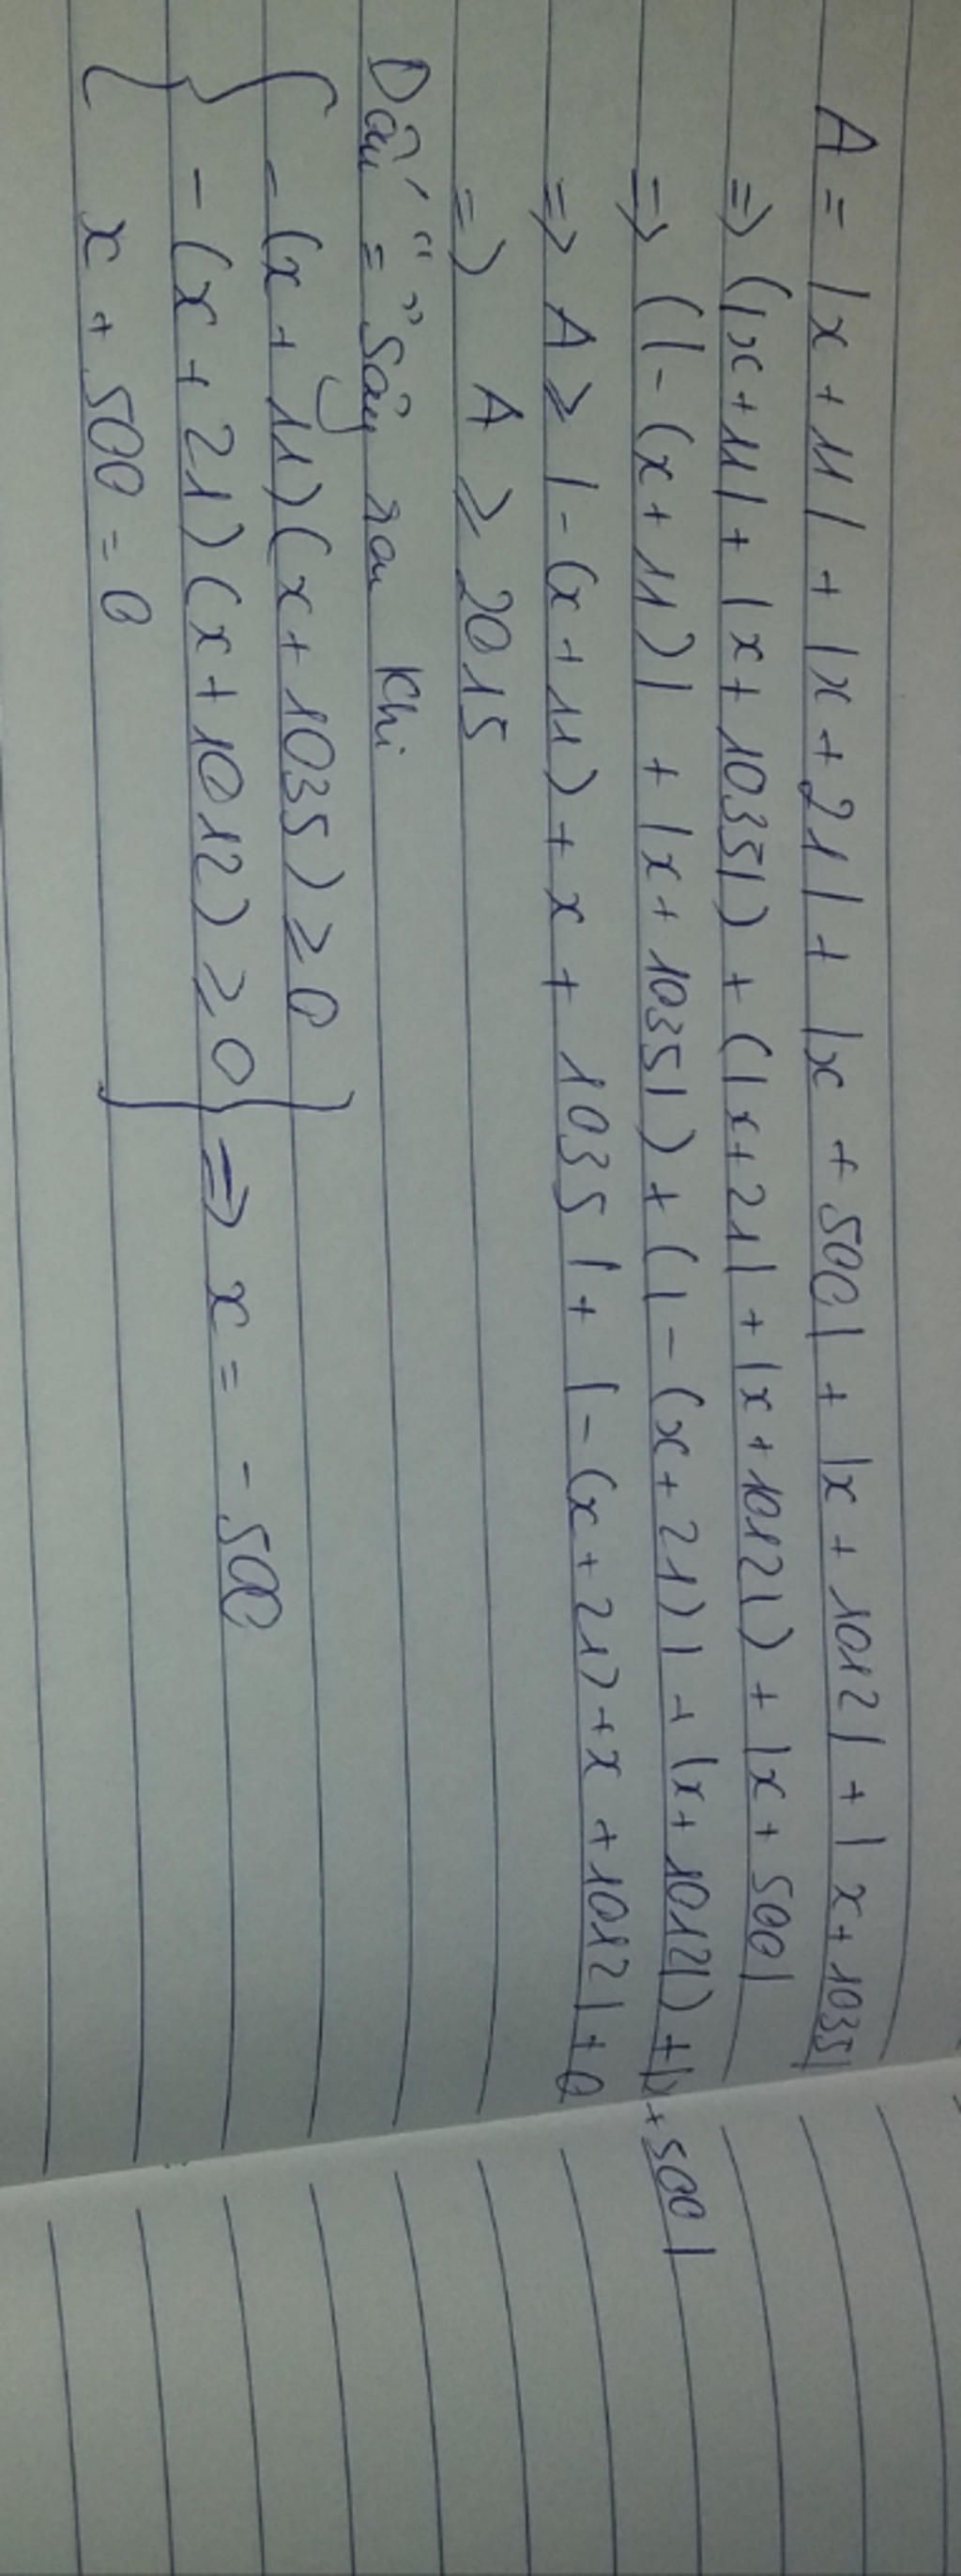 A = |x + 11| + |x + 21| + |x + 500| + |x + 1012| + |x + 1035|
=> (|x + 11| + |x + 1035|) + (|x + 21| + |x + 1012|) + |x + 500|
=> (|-(x + 11)| + |x + 1035|) + (|-(x + 21)| + |x + 1012|) + |x + 500|
=> A ≥ |-(x + 11) + x + 1035| + |-(x + 21) + x + 1012| + 0
=> A ≥ 2015
Dấu "=" sảy ra khi
{ -(x + 11)(x + 1035) ≥ 0
-(x + 21)(x + 1012) ≥ 0 } => x = -500
x + 500 = 0